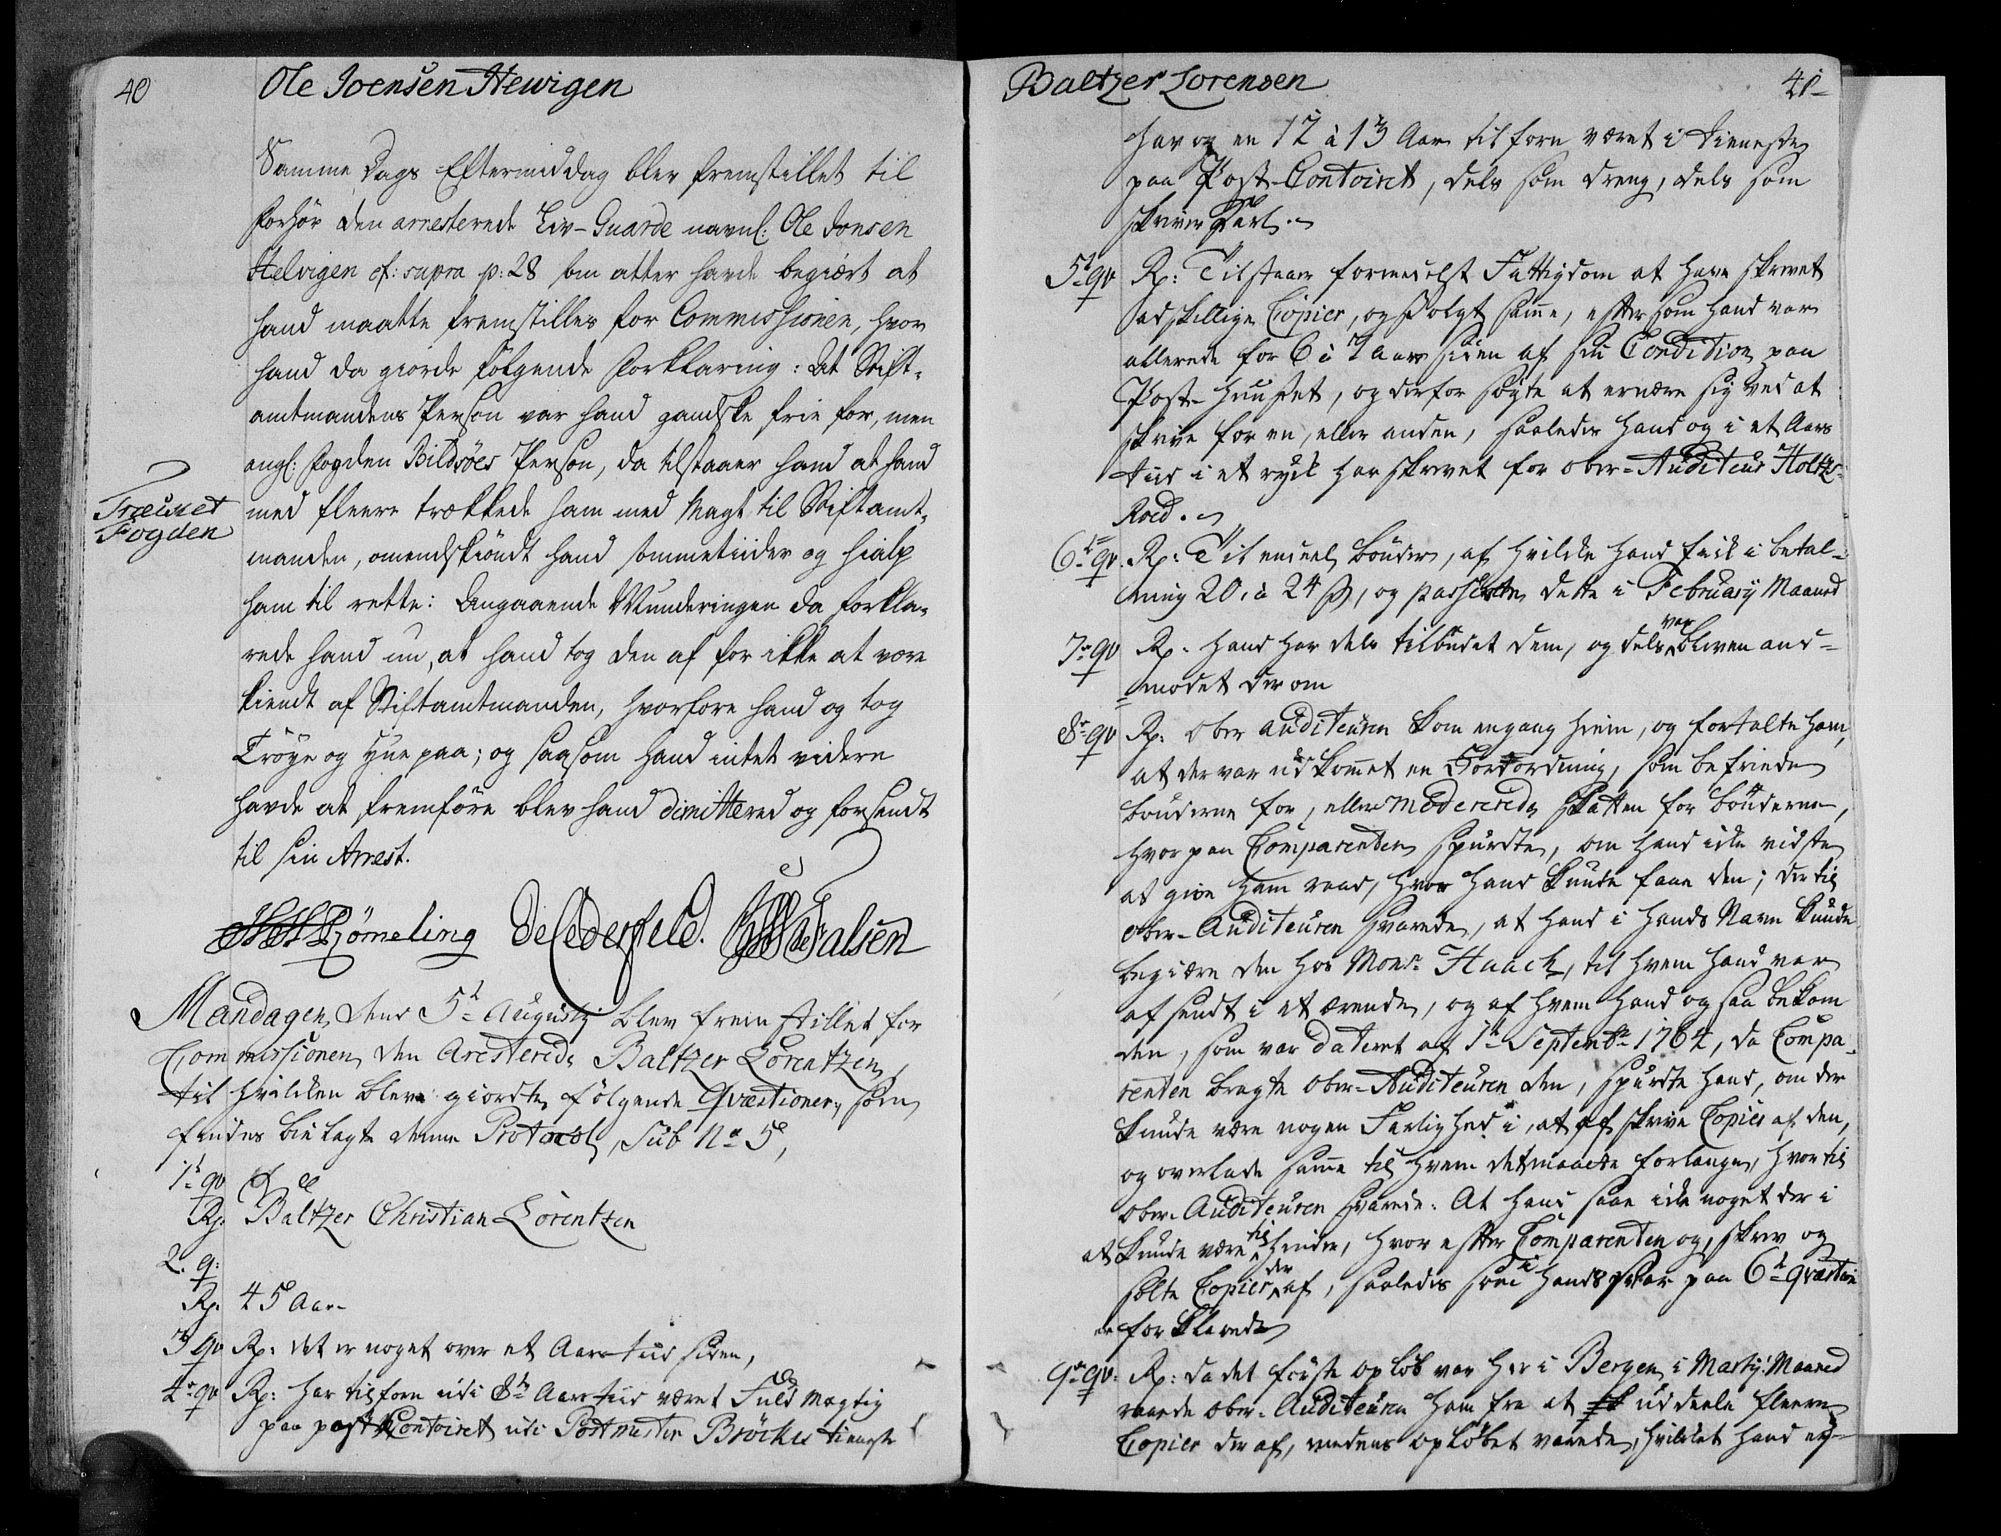 40
Ole Joensen Hewigen
Samme Dags Eftermiddag blev fremstillet til
forhör den arresterede Liv-Guarde navnl: Ole Jonsen
Helvigen cf: supra p: 28 som atter havde begiært at
hand maatte fremstilles for Commissionen, hvor
hand da giorde fölgende forklaring: At Stift-
amtmandens Person var hand gandske frie for, men
angl: fogden Bildsöes Person, da tilstaaer hand at hand
med fleere trækkede ham med Magt til Stiftamt-
manden, omendskiöndt hand sommetiider og hialp
ham til rette: Angaaende Munderingen da forkla-
rede hand nu, at hand tog den af for ikke at være
kiendt af Stiftamtmanden, hvorfore hand og tog
Tröye og Hue paa; og saasom hand intet videre
havde at fremföre blev hand dimittered og forsendt
til sin Arrest.
Trecket
Fogden
Römeling De Cederfeld. Falsen
Mandagen, dend 5t Augustij blev fremstillet for
Commissionen, den Aresterede Baltzer Lorentzen,
til hvilken blev giordte fölgende Qvæstioner, som
findes bielagt denne Protocol, sub No 5,
1t qv
Rp. Baltzer Christian Lorentzen
2. q:
Rp. 45 Aar
3 qv Rp: det er noget over et Aars tiid siden,
4t qv Rp: har tilforn udi 8te Aars tiid været Fuldmægtig
paa post Contoiret udi Postmester Bröckes tieneste
Baltzer Lorensen
41
har og en 12 à 13 Aar tilforn været i tieneste
paa Post-Contoiret, dels som dreng, dels som
skriver Karl.
5t qv Rp: Tilstaar formedelst Fattigdom at have skrevet
adskillige Copier, og solgt samme, eftersom hand var
allerede for 6 à 7 Aar siden af sin Condition paa
Post-Huuset, og derfor søgte at ernære sig ved at
skrive for en, eller anden, saaledes hand og i et Aars
tiid i et rykk har skrevet for ober-Auditeur Holtz-
Roed.
6te qv. Rp: Til endeel bönder, af hvilke hand fick i betal-
ning 20, à 24 ß, og passerte dette i February Maaned
7e qv Rp. Hand har dels tilbudet dem, og dels var bleven and-
modet der om
8e qv Rp: Ober auditeuren kom engang hiem, og fortalte ham,
at der var udkommet en Forordning, som befriede
bönderne for, eller modererede Skatten for bönderne,
hvorpaa Comparenten spurdte, om hand icke vidste
at give ham raad, hvor hand kunde faae den; dertil
ober-Auditeuren svarede, at hand i hands Navn kunde
begiære den hos Monsr Haack, til hvem hand var
afsendt i et ærende, og af hvem hand ogsaa bekom
den, som var dateret af 7t Septembr 1764, da Compa-
renten bragte Ober-Auditeuren den, spurdte hand, om der
kunde være nogen Farlighed i, at afskrive Copier af den,
og overlade samme til hvem det maatte forlange, hvortil
Ober-Auditeuren svarede: At hand saae icke noget der i
at kunde være til hinder, hvorefter Comparenten og skrev og
solte Copier der af, saaledes som i hands svar paa 6te Qvæstion
er forklarede
9de qv: Rp: da det förste oplöb var her i Bergen, i Martij Maaned
raadede Ober-Auditeuren ham fra at uddeele fleere
Copier der af, medens oplöbet varede, hvilket hand ey